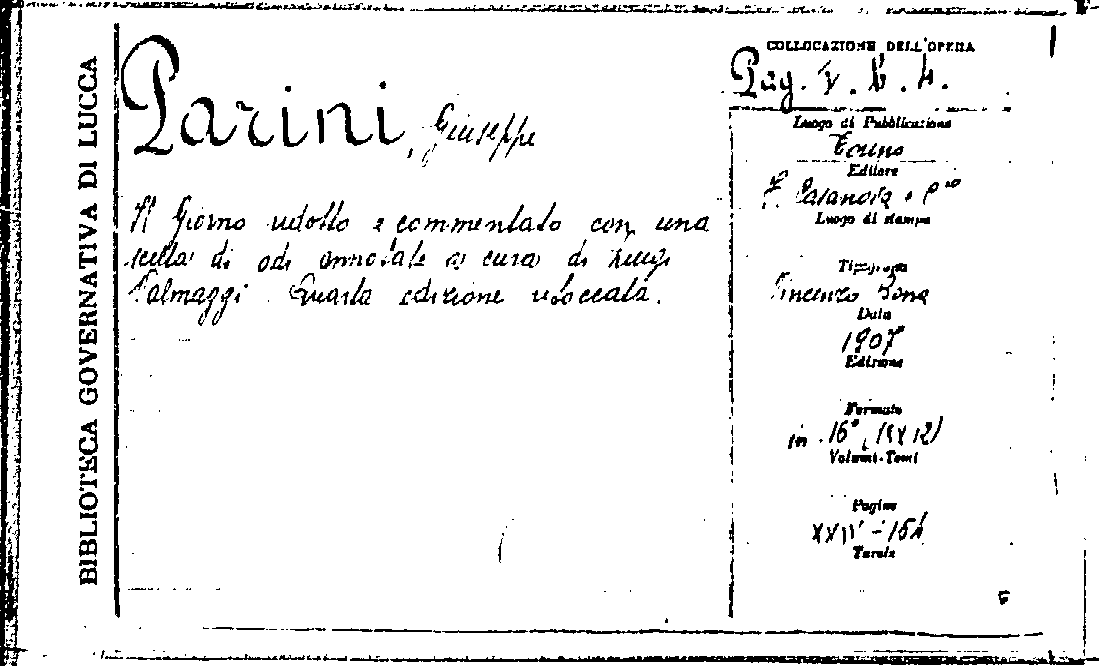 BIBLIOTECA GOVERNATIVA DI LUCCA
Parini, Giuseppe
Il Giorno ridotto e commentato con una
scelta di odi annotate a cura di Luigi
Valmaggi. Quarta edizione ritoccata.
COLLOCAZIONE DELL'OPERA
Pag. V. b. 4.
Luogo di Pubblicazione
Torino
Editore
F. Casanova e C
Luogo di stampa
Tipografia
Vincenzo Bona
Data
1907
Edizione
Formato
in 16°
Volumi-Tomi
Pagine
154
Tavole